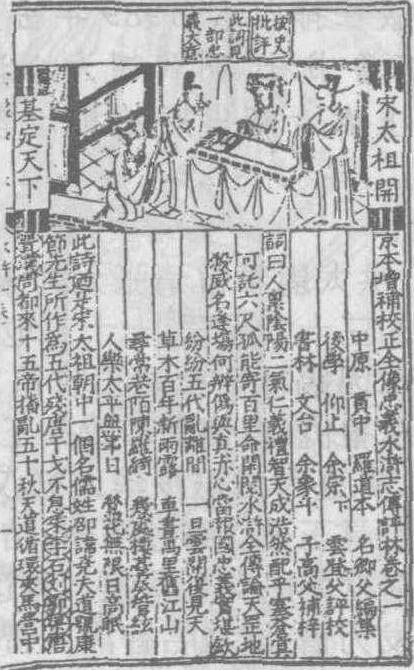 按史
批評
此詞見
一部忠
義大意
宋太祖開
基定天下
京本增補校正全像忠義水滸志傳評林卷之一
中原 貫中 羅道本 名卿父編集
後學 仰止 余宗下 雲登父評校
書林 文台 余象斗 子高父補梓
詞曰人稟陰陽二氣仁義禮智天成浩然配乎塞蒼冥
可託六尺孤能寄百里命開閱水滸全傳論天罡地
煞威名逢場何辨偽與真赤心當報國忠義實堪欽
紛紛五代亂離間 一旦雲開復見天
草木百年新雨露 車書萬里舊江山
尋常巷陌陳羅綺 幾處樓臺奏管絃
人樂太平無事日 鶯花無限日高眠
此詩迺是宋太祖朝中一個名儒姓邵諱堯夫道號康
節先生所作為五代殘唐干戈不息朱李石劉郭梁唐
晉漢周都來十五帝播亂五十秋天道循環來馬營中